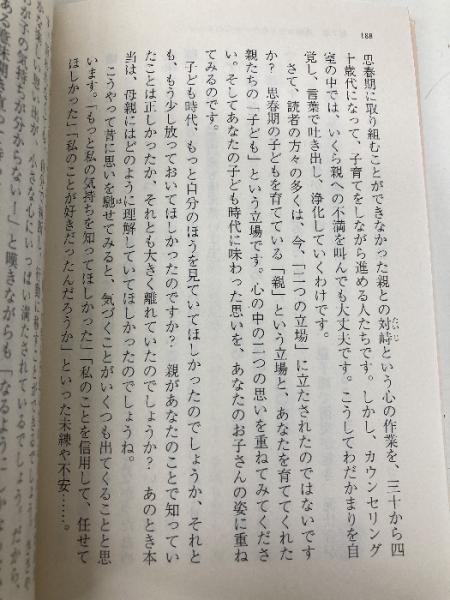 188
思春期に取り組むことができなかった親との対峙という心の作業を、三十から四
たいじ
十歳代になって、子育てをしながら進める人たちです。しかし、カウンセリング
室の中では、いくら親への不満を叫んでも大丈夫です。こうしてわだかまりを自
覚し、言葉で吐き出し、浄化していくわけです。
さて、読者の方々の多くは、今、「二つの立場」に立たされたのではないです
か? 思春期の子どもを育てている「親」という立場と、あなたを育ててくれた
親たちの「子ども」という立場です。心の中の二つの思いを重ねてみてくださ
い。そしてあなたの子ども時代に味わった思いを、あなたのお子さんの姿に重ね
てみるのです。
子ども時代、もっと自分のほうを見ていてほしかったのでしょうか、それと
も、もう少し放っておいてほしかったのですか? 親があなたのことで知ってい
たことは正しかったか、それとも大きく離れていたのでしょうか? あのとき本
当は、母親にはどのように理解していてほしかったのでしょうね。
こうやって昔に思いを馳せてみると、気づくことがいくつも出てくることと思
は
います。「もっと私の気持ちを知ってほしかった」「私のことを信用して、任せて
ほしかった」「私のことが好きだったんだろうか」といった未練や不安……。
小さな心にいっぱい満たされているで
子の気持ちが分からない!」と嘆きながらも「なるよう